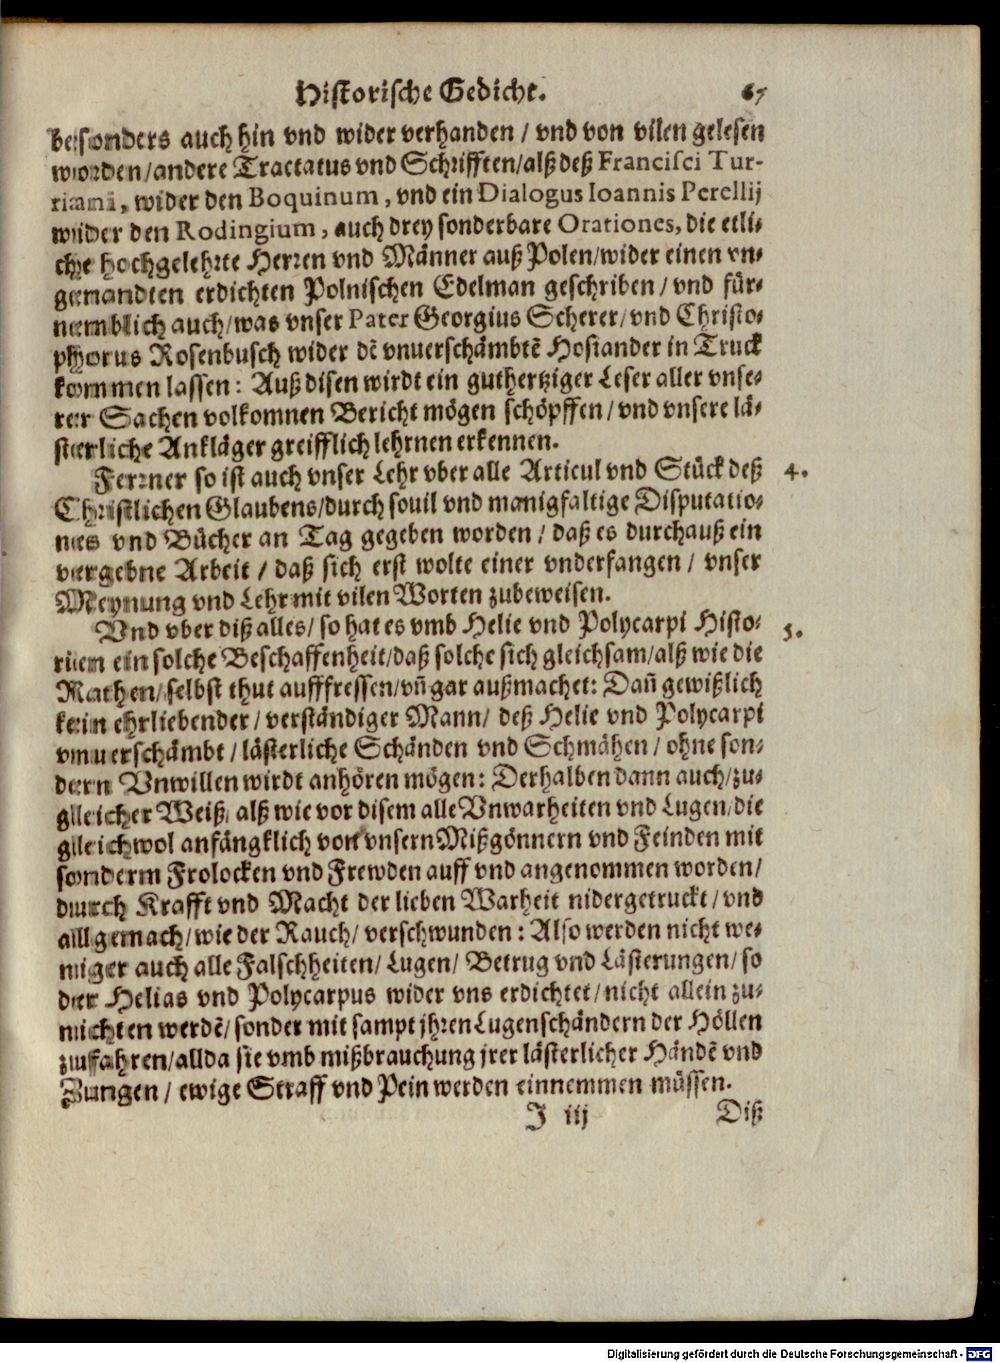 Historische Gedicht. 67
besonders auch hin vnd wider verhanden / vnd von vilen gelesen
worden/andere Tractatus vnd Schrifften/alß deß Francisci Tur-
riani, wider den Boquinum, vnd ein Dialogus Ioannis Perellij
wider den Rodingium, auch drey sonderbare Orationes, die etli-
che hochgelehrte Herren vnd Männer auß Polen/wider einen vn-
genandten erdichten Polnischen Edelman geschriben / vnd für-
nemblich auch/was vnser Pater Georgius Scherer/vnd Christo-
phorus Rosenbusch wider dē vnuerschämbtē Hosiander in Truck
kommen lassen: Auß disen wirdt ein guthertziger Leser aller vnse-
rer Sachen volkomnen Bericht mögen schöpffen/vnd vnsere lä-
sterliche Ankläger greifflich lehrnen erkennen.
Ferrner so ist auch vnser Lehr vber alle Articul vnd Stück deß 4.
Christlichen Glaubens/durch souil vnd manigfaltige Disputatio-
nes vnd Bücher an Tag gegeben worden / daß es durchauß ein
vergebne Arbeit / daß sich erst wolte einer vnderfangen / vnser
Meynung vnd Lehr mit vilen Worten zubeweisen.
Vnd vber diß alles/ so hat es vmb Helie vnd Polycarpi Histo- 5.
rien ein solche Beschaffenheit/daß solche sich gleichsam/alß wie die
Rathen/selbst thut aufffressen/vñ gar außmachet: Dañ gewißlich
kein ehrliebender / verständiger Mann/ deß Helie vnd Polycarpi
vnuerschämbt / lästerliche Schänden vnd Schmähen / ohne son-
dern Vnwillen wirdt anhören mögen: Derhalben dann auch/zu-
gleicher Weiß/ alß wie vor disem alle Vnwarheiten vnd Lugen/die
gleichwol anfängklich von vnsern Mißgönnern vnd Feinden mit
sonderm Frolocken vnd Frewden auff vnd angenommen worden/
durch Krafft vnd Macht der lieben Warheit nidergetruckt/ vnd
allgemach/wie der Rauch/ verschwunden: Also werden nicht we-
niger auch alle Falschheiten/ Lugen/ Betrug vnd Lästerungen/ so
der Helias vnd Polycarpus wider vns erdichtet/nicht allein zu-
nichten werdē/ sonder mit sampt jhren Lugenschändern der Höllen
zuffahren/allda sie vmb mißbrauchung jrer lästerlicher Händē vnd
Zungen / ewige Straff vnd Pein werden einnemmen müssen.
J iij Diß
Digitalisierung gefördert durch die Deutsche Forschungsgemeinschaft - DFG